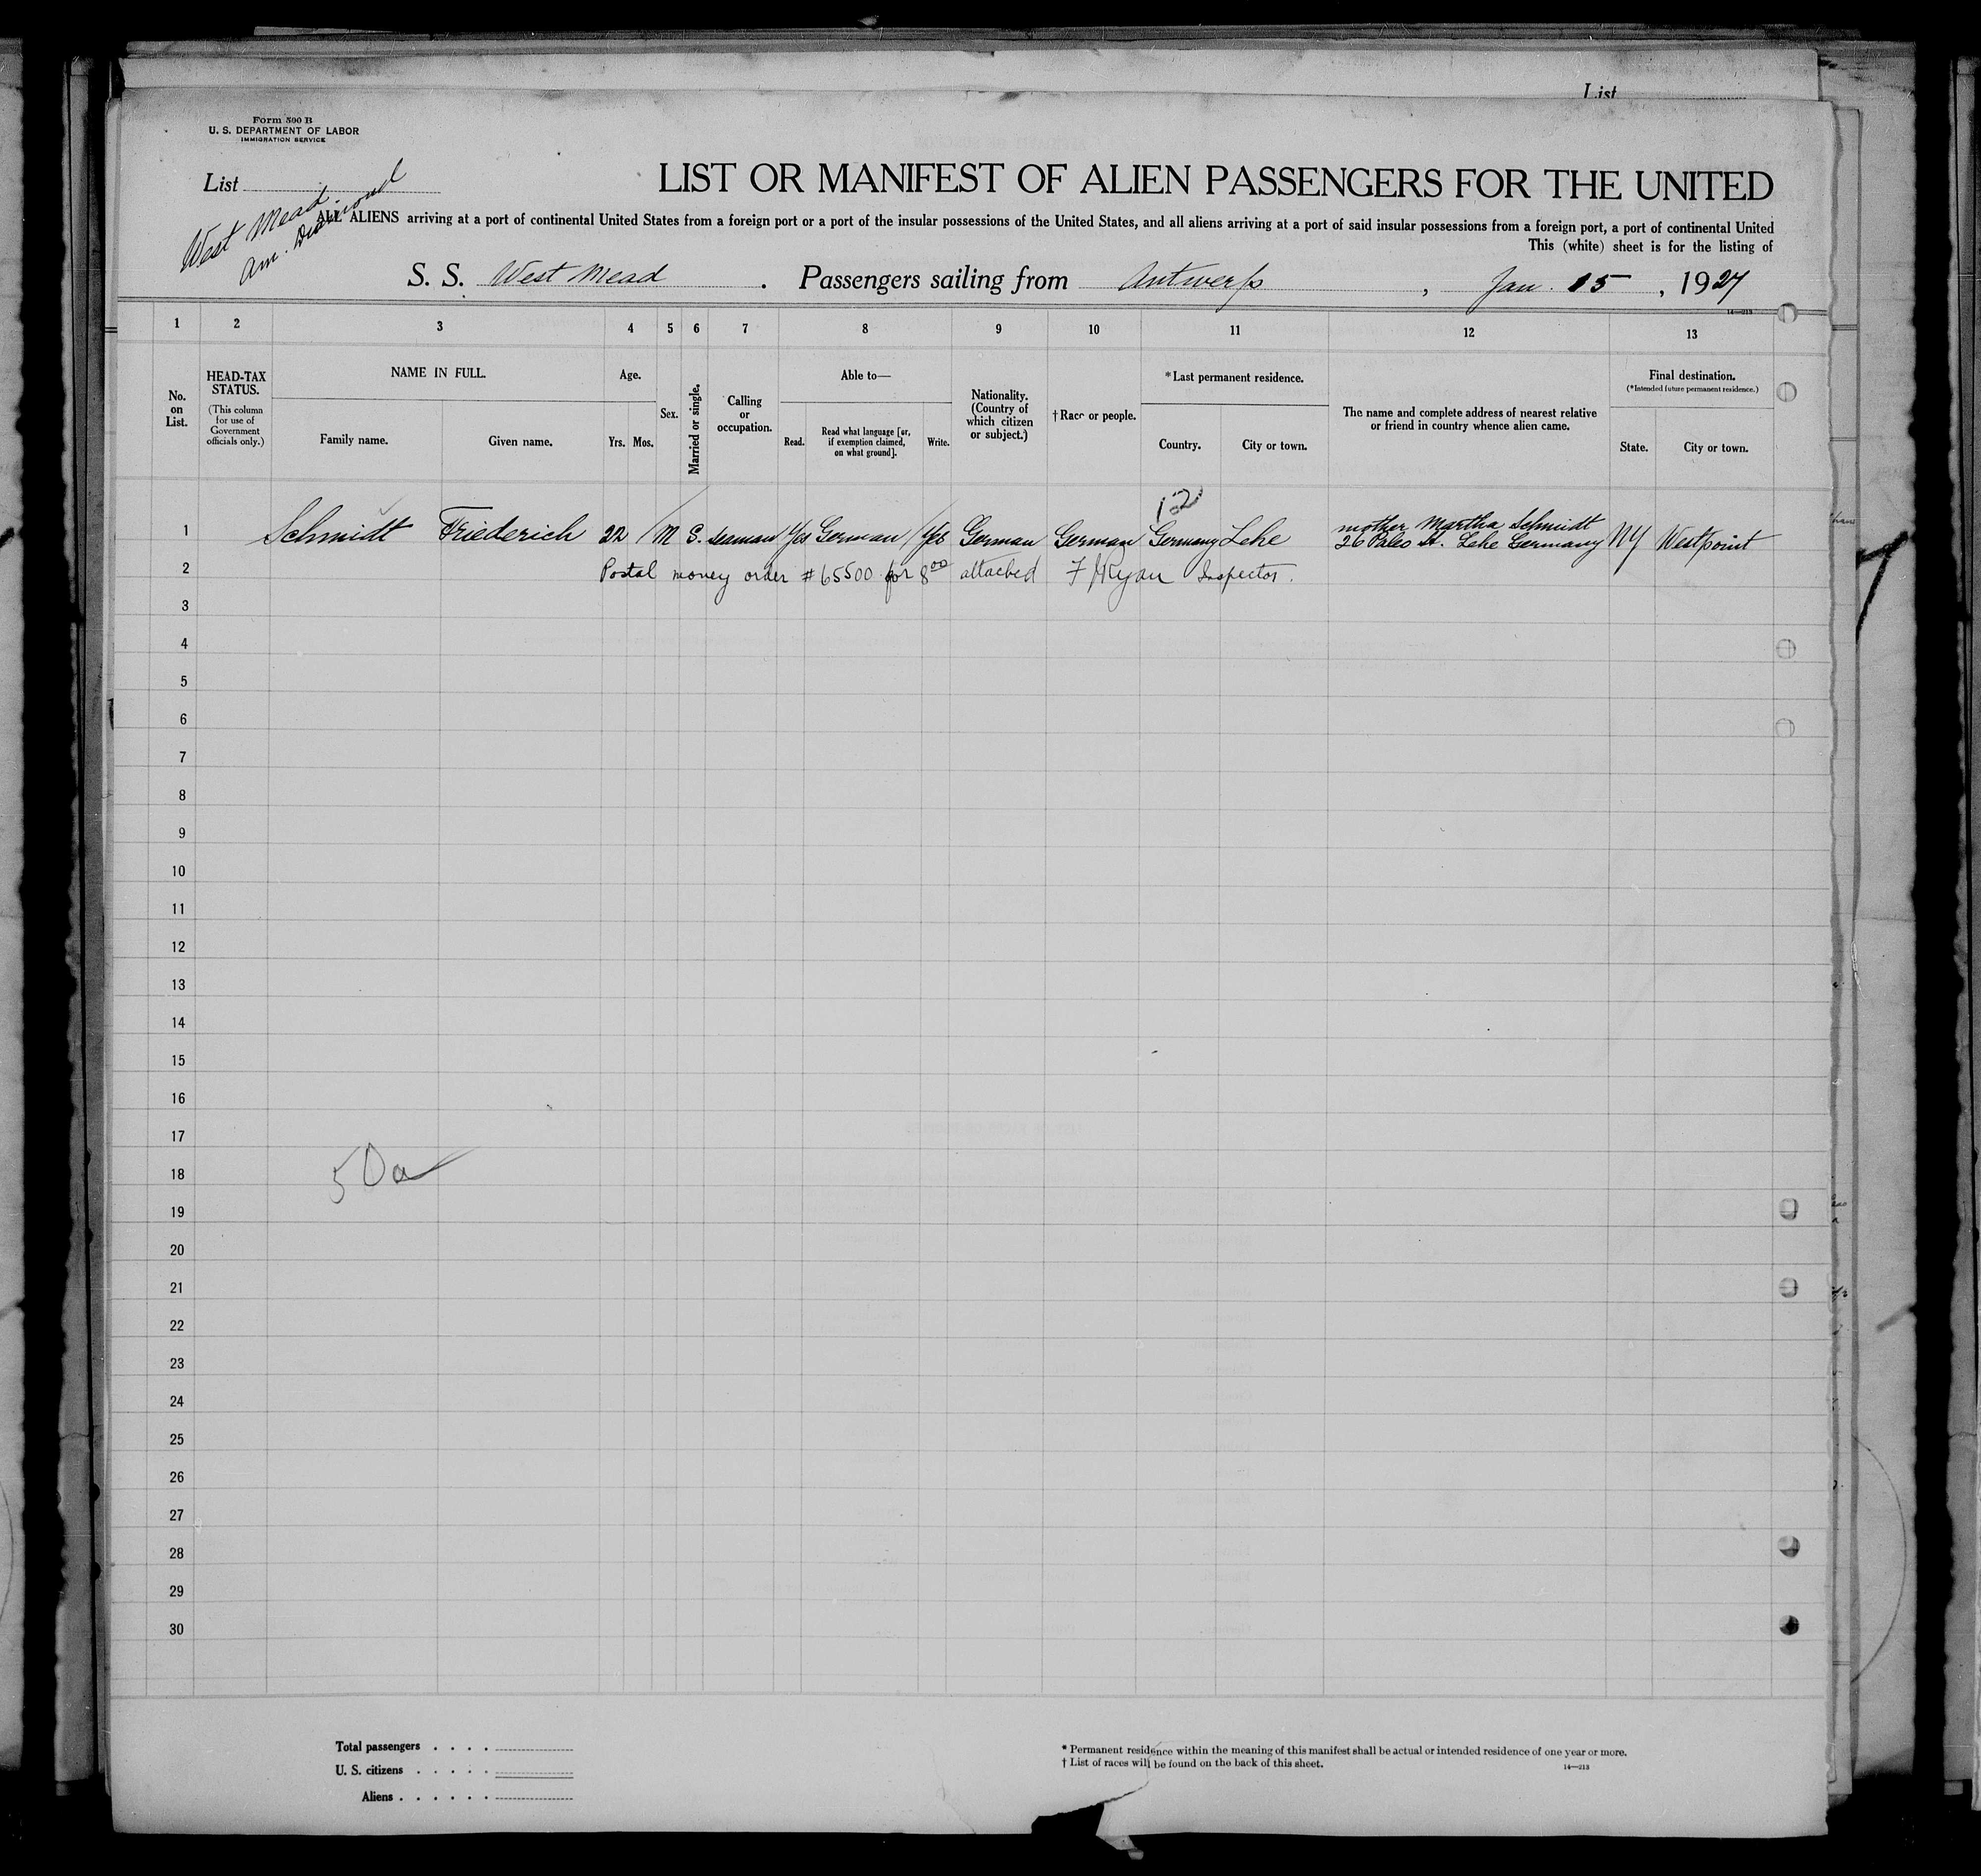 List
Form 500 B
U. S. DEPARTMENT OF LABOR
IMMIGRATION SERVICE
List
West Mead.
Am. Diamond
LIST OR MANIFEST OF ALIEN PASSENGERS FOR THE UNITED
ALL ALIENS arriving at a port of continental United States from a foreign port or a port of the insular possessions of the United States, and all aliens arriving at a port of said insular possessions from a foreign port, a port of continental United
This (white) sheet is for the listing of
S. S. West Mead . Passengers sailing from Antwerp , Jan. 15 , 1927
14—213
1 2 3 4 5 6 7 8 9 10 11 12 13
No. on List.
HEAD-TAX STATUS.
(This column for use of Government officials only.)
NAME IN FULL.
Family name.
Given name.
Age.
Yrs. Mos.
Sex.
Married or single.
Calling or occupation.
Able to—
Read.
Read what language [or, if exemption claimed, on what ground].
Write.
Nationality. (Country of which citizen or subject.)
†Race or people.
*Last permanent residence.
Country.
City or town.
The name and complete address of nearest relative or friend in country whence alien came.
Final destination.
(*Intended future permanent residence.)
State.
City or town.
12
1 Schmidt Friederich 22 M S. seaman Yes German Yes German German Germany Lehe mother Martha Schmidt
26 St. Lehe Germany NY Westpoint
2 Postal money order #65500 for 8⁰⁰ attached F Ryan Inspector.
3
4
5
6
7
8
9
10
11
12
13
14
15
16
17
18 50a
19
20
21
22
23
24
25
26
27
28
29
30
Total passengers . . . .
U. S. citizens . . . . .
Aliens . . . . . .
* Permanent residence within the meaning of this manifest shall be actual or intended residence of one year or more.
† List of races will be found on the back of this sheet.
14—213